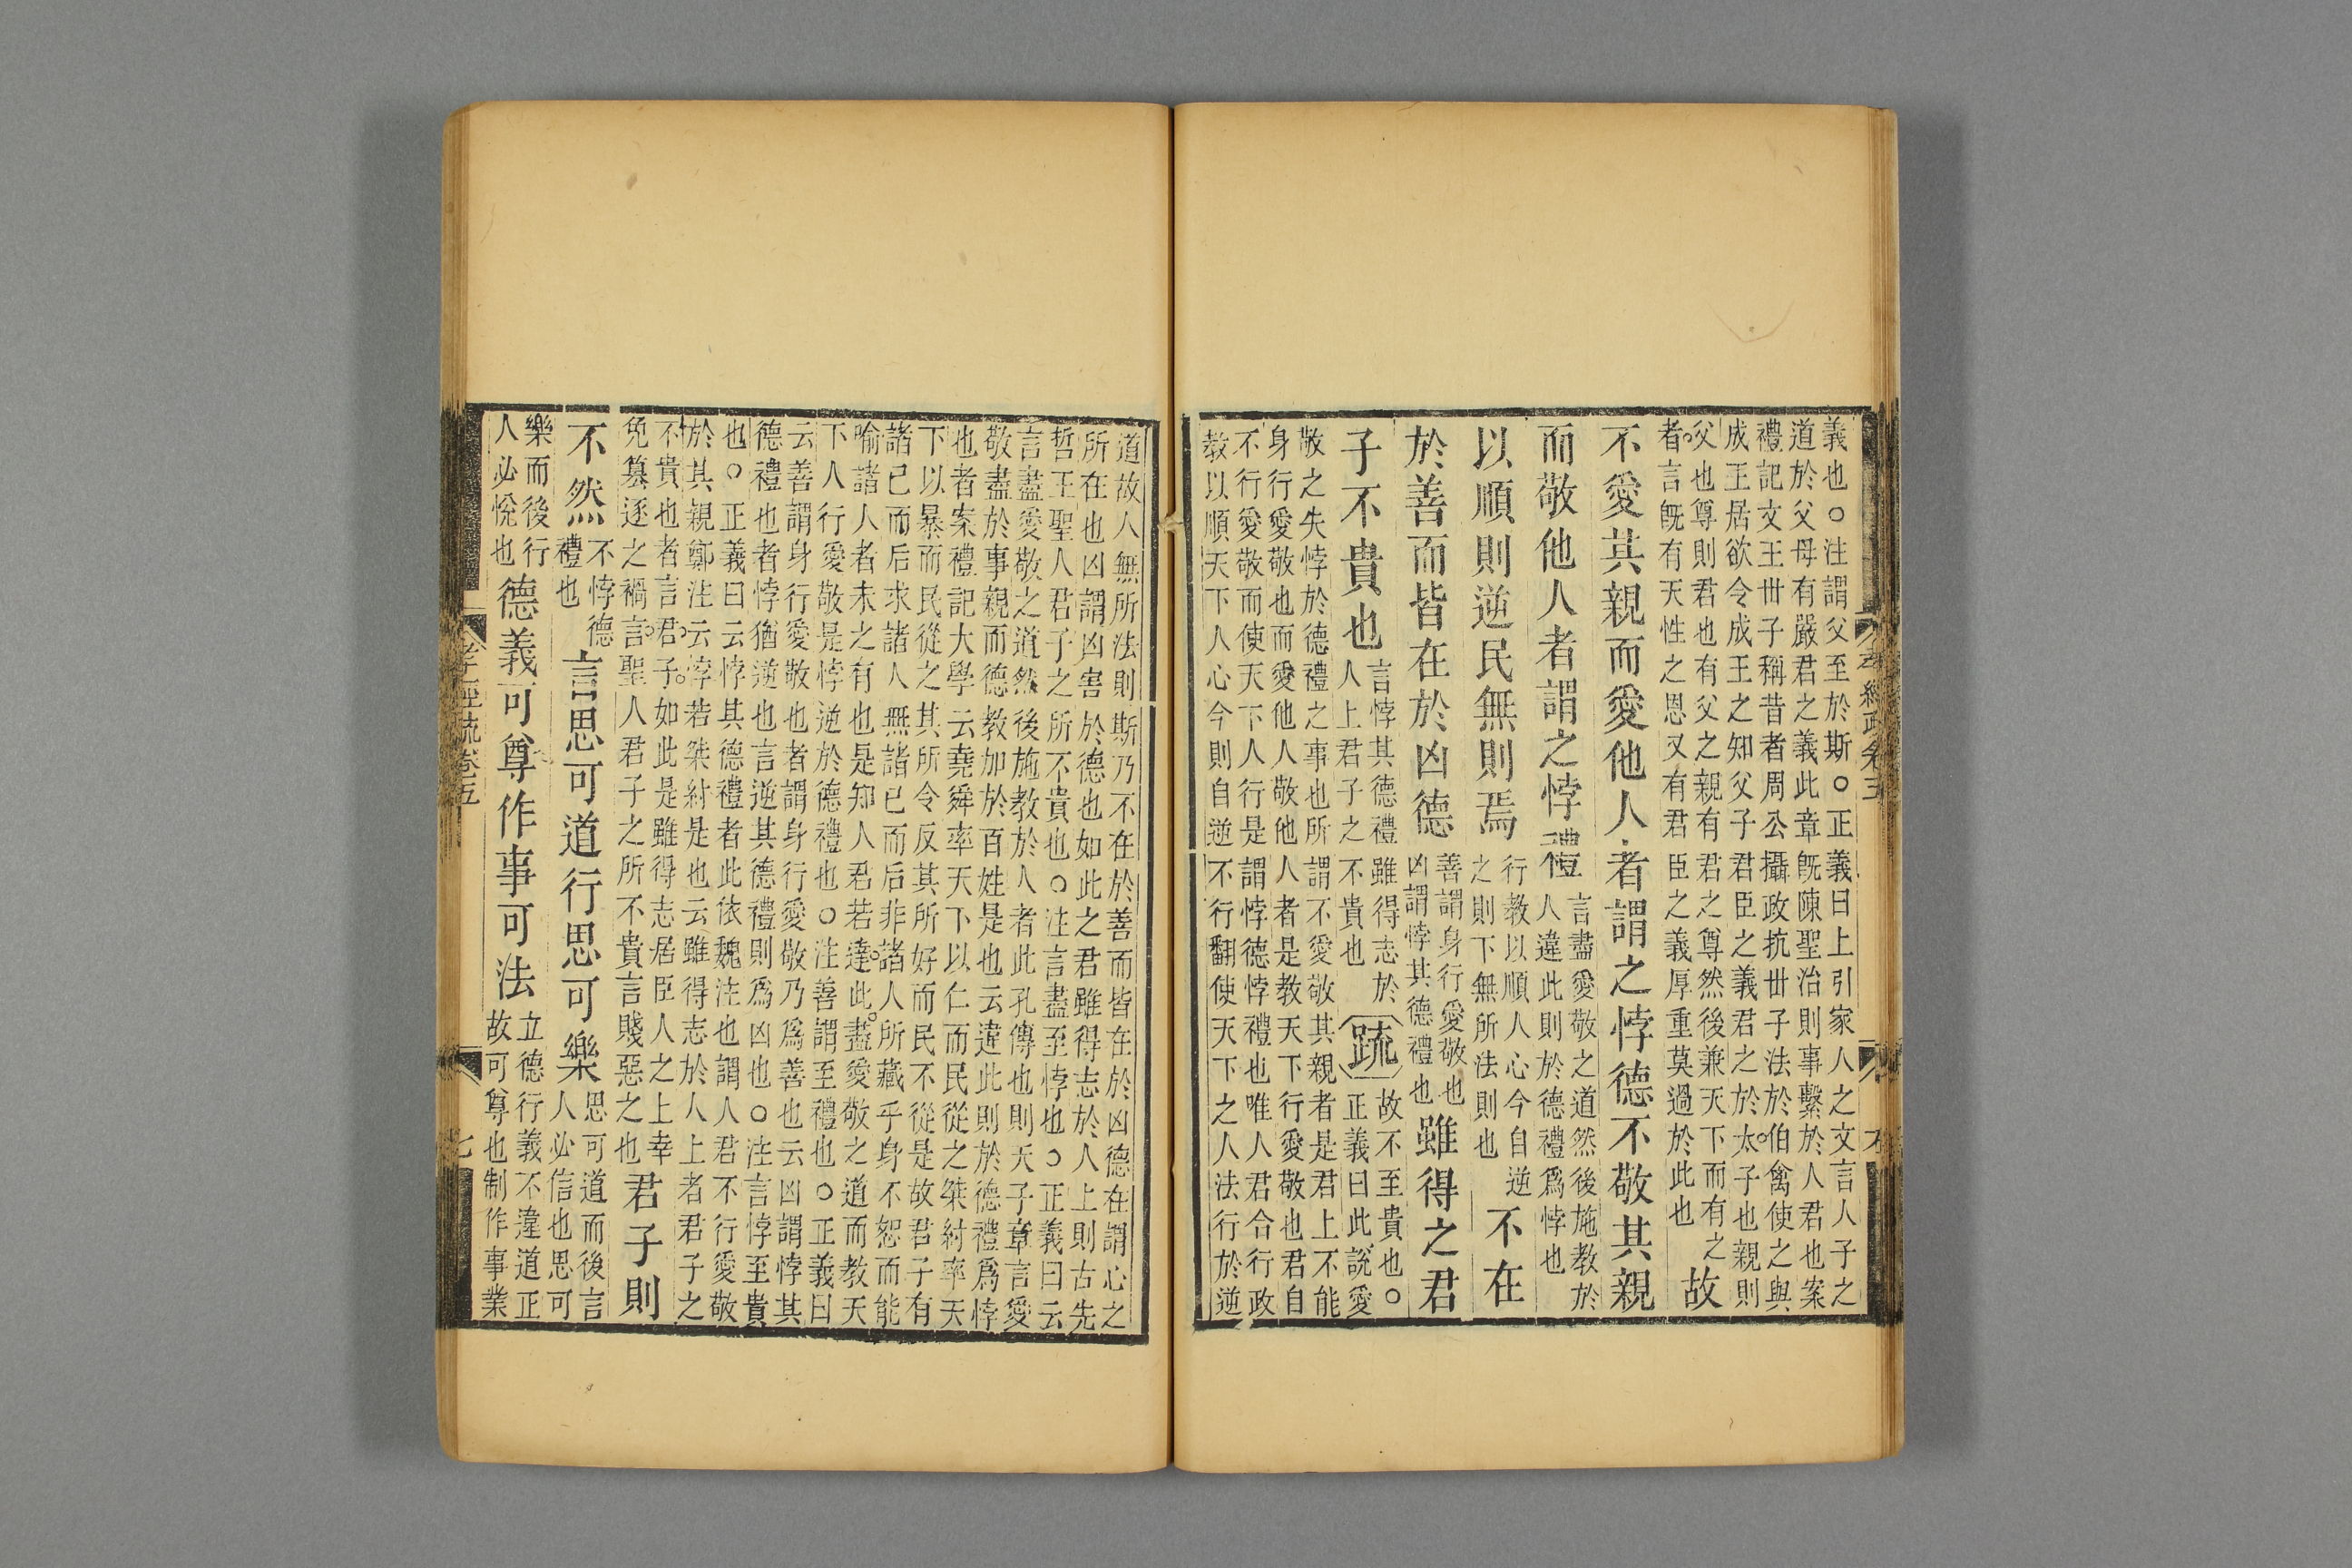 義也○注謂父至於斯○正義曰上引家人之文言人子之
道於父母有嚴君之義此章既陳聖治則事繫於人君也案
禮記文王世子稱昔者周公攝政抗世子法於伯禽使之與
成王居欲令成王之知父子君臣之義君之於太子也親則
父也尊則君也有父之親有君之尊然後兼天下而有之
者言既有天性之恩又有君臣之義厚重莫過於此也
故
不愛其親而愛他人者謂之悖德不敬其親
而敬他人者謂之悖禮
言盡愛敬之道然後施教於
人違此則於德禮爲悖也
以順則逆民無則焉
行教以順人心今自逆
之則下無所法則也
不在
於善而皆在於凶德
善謂身行愛敬也
凶謂悖其德禮也
雖得之君
子不貴也
言悖其德禮雖得志於
人上君子之不貴也
疏
故不至貴也○
正義曰此說愛
敬之失悖於德禮之事也所謂不愛敬其親者是君上不能
身行愛敬也而愛他人敬他人者是教天下行愛敬也君自
不行愛敬而使天下人行是謂悖德悖禮也唯人君合行政
教以順天下人心今則自逆不行翻使天下之人法行於逆
道故人無所法則斯乃不在於善而皆在於凶德在謂心之
所在也凶謂凶害於德也如此之君雖得志於人上則古先
哲王聖人君子之所不貴也○注言盡至悖也○正義曰云
言盡愛敬之道然後施教於人者此孔傳也則天子章言愛
敬盡於事親而德教加於百姓是也云違此則於德禮爲悖
也者案禮記大學云堯舜率天下以仁而民從之桀紂率天
下以暴而民從之其所令反其所好而民不從是故君子有
諸已而后求諸人無諸已而后非諸人所藏乎身不恕而能
喻諸人者未之有也是知人君若達此盡愛敬之道而教天
下人行愛敬是悖逆於德禮也○注善謂至禮也○正義曰
云善謂身行愛敬也者謂身行愛敬乃爲善也云凶謂悖其
德禮也者悖猶逆也言逆其德禮則爲凶也○注言悖至貴
也○正義曰云悖其德禮者此依魏注也謂人君不行愛敬
於其親鄭注云悖若桀紂是也云雖得志於人上者君子之
不貴也者言君子如此是雖得志居臣人之上幸
免篡逐之禍言聖人君子之所不貴言賤惡之也
君子則
不然
不悖德
禮也
言思可道行思可樂
思可道而後言
人必信也思可
樂而後行
人必悅也
德義可尊作事可法
立德行義不違道正
故可尊也制作事業
孝經疏卷五
七